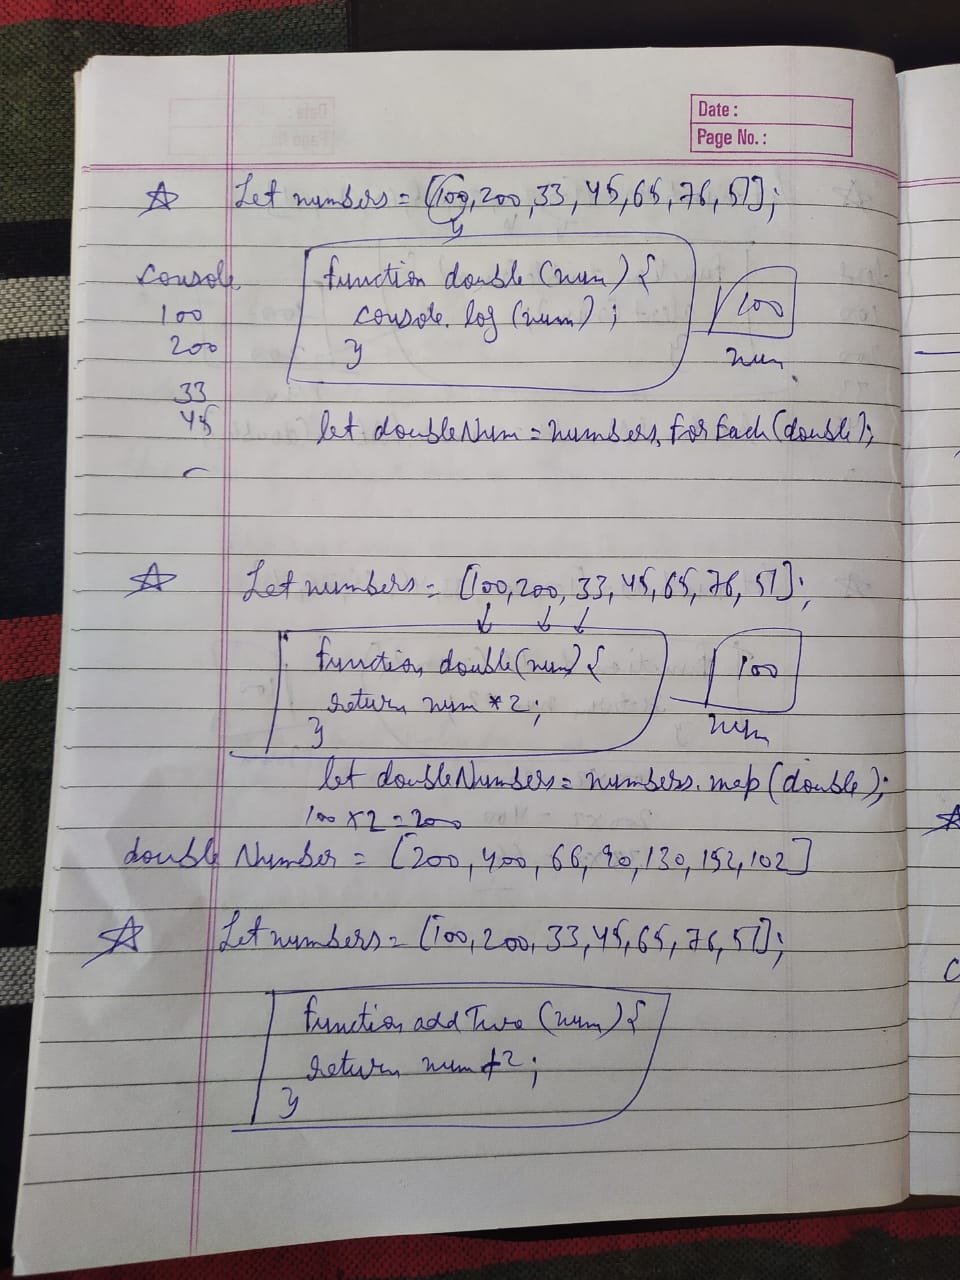 Date :
Page No. :
Let numbers = [100, 200, 33, 45, 65, 76, 51];
console
100
200
33
45
function double (num) {
console. log (num) ;
}
100
num
let doubleNum = numbers. forEach (double);
Let numbers = [100, 200, 33, 45, 65, 76, 51];
function double (num) {
return num * 2;
}
100
num
let doubleNumbers = numbers. map (double);
100 x 2 = 200
double Number = [200, 400, 66, 90, 130, 152, 102]
Let numbers = [100, 200, 33, 45, 65, 76, 51];
function add Two (num) {
return num + 2;
}